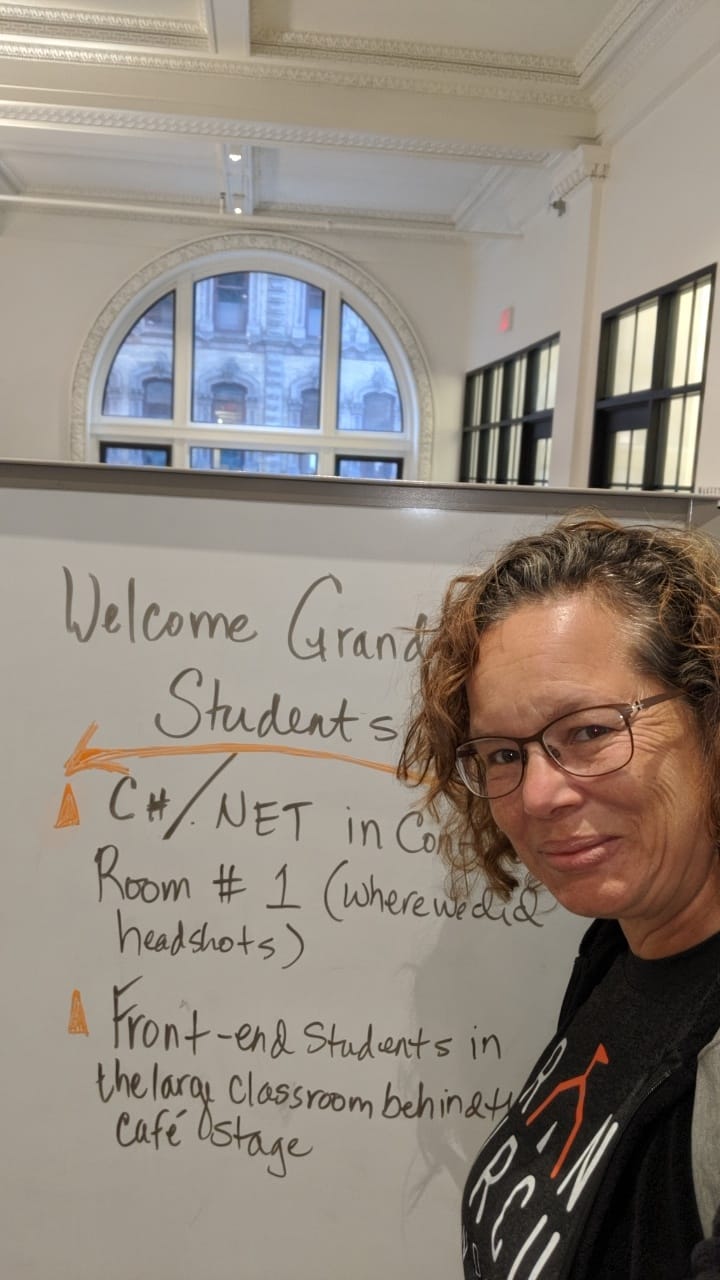 Welcome Grand
Students
C#/.NET in Con
Room # 1 (where we did
headshots)
Front-end Students in
the larg classroom behind
café stage